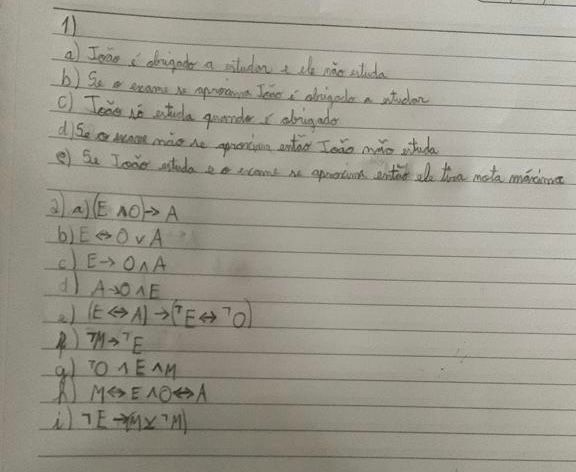 1)
a) João é obrigado a estudar e ele não estuda
b) Se o exame se aproxima João é obrigado a estudar
c) João só estuda quando é obrigado
d) Se o exame não se aproxima então João não estuda
e) Se João estuda e o exame se aproxima então ele tira nota máxima
2) a) (E ∧ O) → A
b) E ⇔ O ∨ A
c) E → O ∧ A
d) A → O ∧ E
e) (E ⇔ A) → (¬E ⇔ ¬O)
f) ¬M → ¬E
g) ¬O ∧ E ∧ M
h) M ⇔ E ∧ O ⇔ A
i) ¬E → (M ⊻ ¬M)